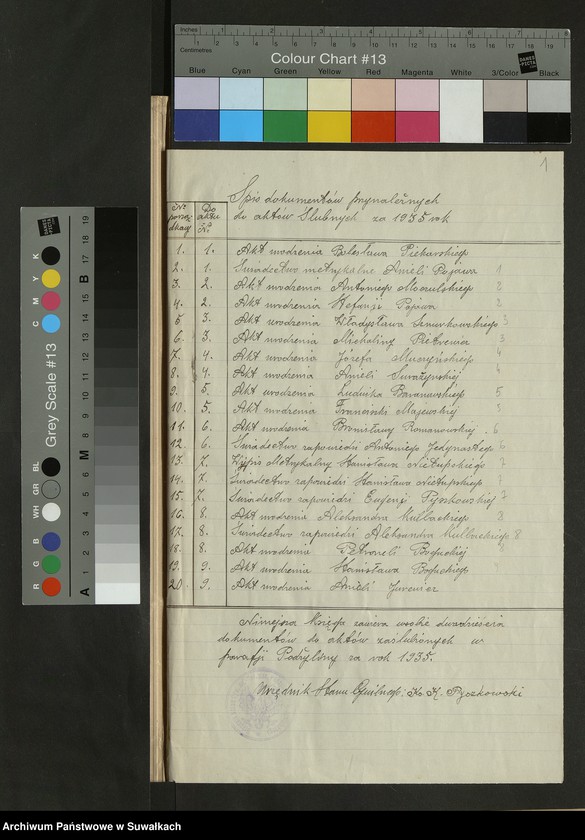 Inches 1 2 3 4 5 6 7 8
Centimetres 1 2 3 4 5 6 7 8 9 10 11 12 13 14 15 16 17 18 19
Colour Chart #13
Blue Cyan Green Yellow Red Magenta White 3/Color Black
DANES
PICTA
1
Spis dokumentów przynależnych
do aktów Ślubnych za 1935 rok
Nr Do
porząd aktu
dkowy Nr
1. 1. Akt urodzenia Bolesława Piekarskiego
2. 1. Świadectwo metrykalne Anieli Popawa 1
3. 2. Akt urodzenia Antoniego 2
4. 2. Akt urodzenia Stefanji Popawa 2
5 3. Akt urodzenia Władysława 3
6. 3. Akt urodzenia Michaliny
7. 4. Akt urodzenia Józefa 4
8. 4. Akt urodzenia Anieli 4
9. 5. Akt urodzenia Ludwika Baranowskiego 5
10. 5. Akt urodzenia Franciszki Majewskiej 5
11. 6. Akt urodzenia Bronisławy Romanowskiej 6
12. 6. Świadectwo zapowiedzi Antoniego Jedynastego 6
13. 7. Wypis Metrykalny Stanisława Nietupskiego 7
14. 7. Świadectwo zapowiedzi Stanisława Nietupskiego 7
15. 7. Świadectwo zapowiedzi Eugenji Pyszkowskiej 7
16. 8. Akt urodzenia Aleksandra Kulbackiego 8
17. 8. Świadectwo zapowiedzi Aleksandra Kulbackiego 8
18. 8. Akt urodzenia Petroneli Boguckiej
19. 9. Akt urodzenia Stanisława Boguckiego
20. 9. Akt urodzenia Anieli
Niniejsza Księga zawiera w sobie dwadzieścia
dokumentów do aktów zaślubionych w
parafji za rok 1935.
Urzędnik Stanu Cywilnego: Ks. K. Pyszkowski
Grey Scale #13
C M Y K
R G B WH GR BL
A 1 2 3 4 5 6 M 8 9 10 11 12 13 14 15 B 17 18 19
Archiwum Państwowe w Suwałkach